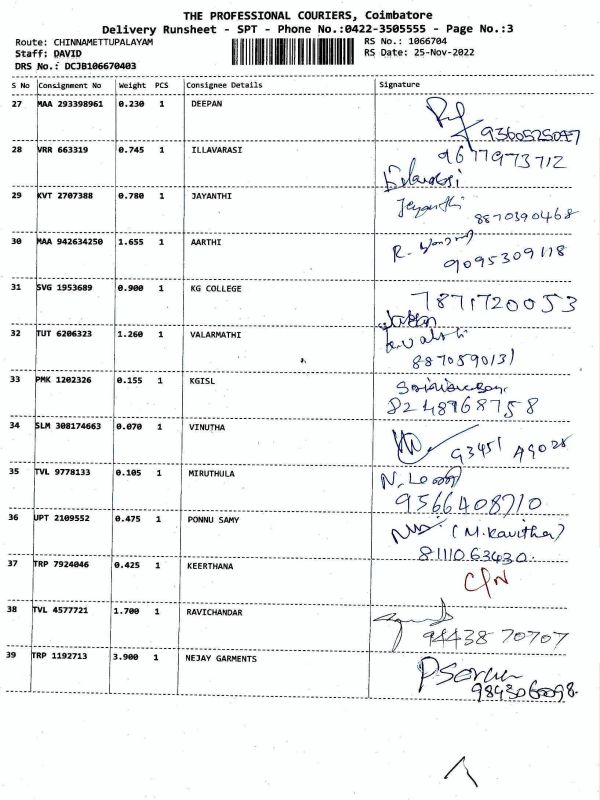 THE PROFESSIONAL COURIERS, Coimbatore
Delivery Runsheet - SPT - Phone No.:0422-3505555 - Page No.:3
Route: CHINNAMETTUPALAYAM RS No.: 1066704
Staff: DAVID RS Date: 25-Nov-2022
DRS No.: DCJB106670403
S No Consignment No Weight PCS Consignee Details Signature
27 MAA 293398961 0.230 1 DEEPAN
28 VRR 663319 0.745 1 ILLAVARASI 9677973712
29 KVT 2707388 0.780 1 JAYANTHI Jeyanthi
8870390468
30 MAA 942634250 1.655 1 AARTHI R.
9095309118
31 SVG 1953689 0.900 1 KG COLLEGE 7871720053
32 TUT 6206323 1.260 1 VALARMATHI
8870590131
33 PMK 1202326 0.155 1 KGISL
8248968758
34 SLM 308174663 0.070 1 VINUTHA 93451
35 TVL 9778133 0.105 1 MIRUTHULA N.
9566408710
36 UPT 2109552 0.475 1 PONNU SAMY (M.Kavitha)
8111063430.
37 TRP 7924046 0.425 1 KEERTHANA
38 TVL 4577721 1.700 1 RAVICHANDAR
94438 70707
39 TRP 1192713 3.900 1 NEJAY GARMENTS